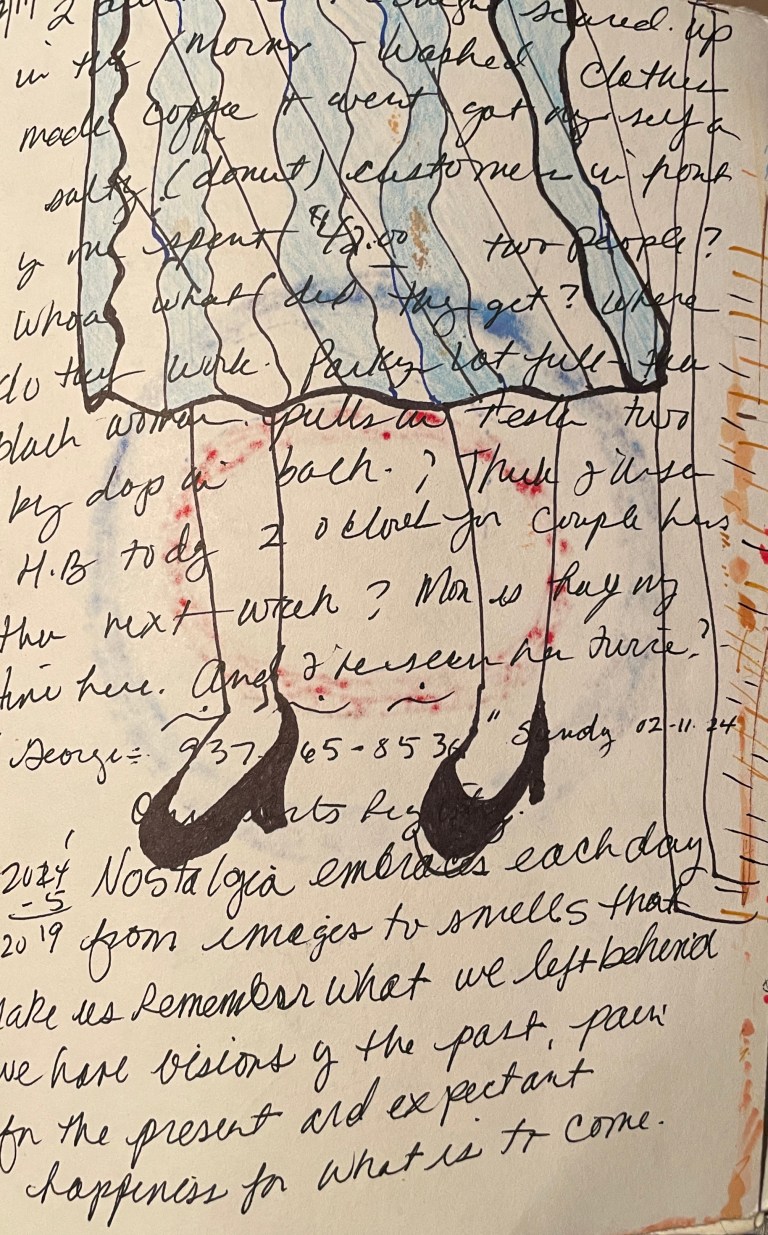 scared. up
in the morng - washed clothes
made coffee + went got my self a
salty (donut) customers in front
y me spent $12.00 two people?
Whoa what did they get? Where
do they work. Parkg Lot full -
black woman. pulls in Tesla two
bg dogs in back. ?
H.B today 2 o clock for couple hrs
next week ? Mon is
time here. And
George = 937 65-853 " Sandy 02-11-24
2024 Nostalgia embraces each day
- 5
2019 from images to smells that
us Remember what we left behind
we have visions y the past, pain
fn the present and expectant
happiness for what is to come.